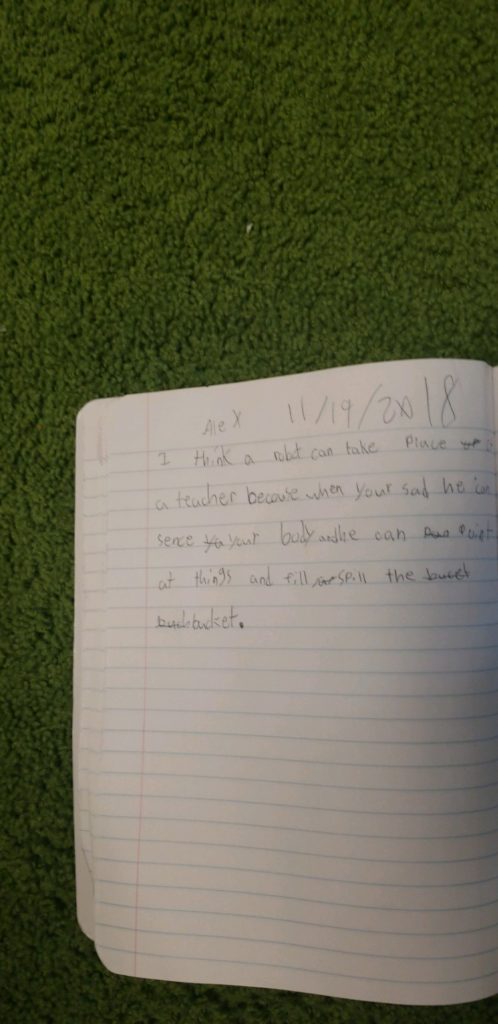 Alex 11/19/2018
I think a robot can take Place
a teacher because when your sad he can
sence your body and he can Point
at things and fill spill the
bucket.